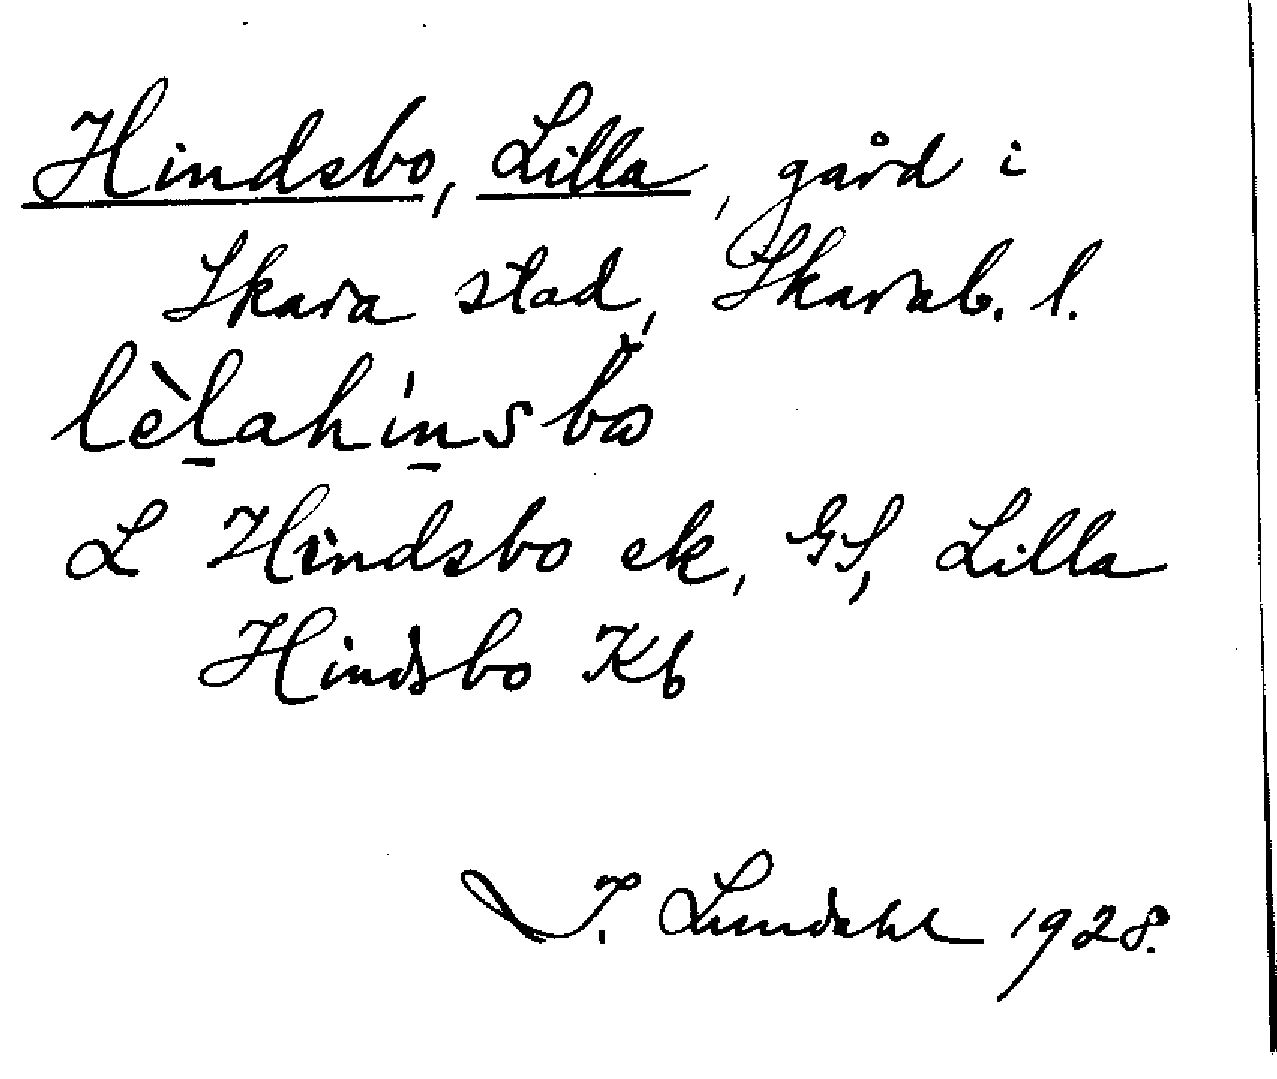 Hindsbo, Lilla, gård i
Skara stad, Skarab. l.
lèl̠ahin̠sbω̆
L Hindsbo ek, GS, Lilla
Hindsbo Kb
I. Lundahl 1928.